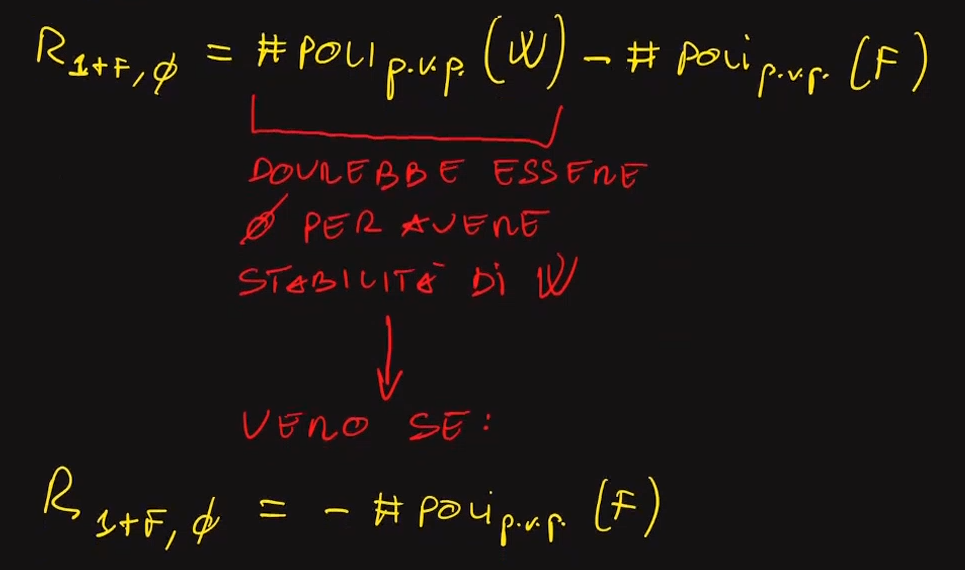 R 1+F, ∅ = # POLI p.v.p. (W) - # POLI p.v.p. (F)
DOVREBBE ESSERE
∅ PER AVERE
STABILITÀ DI W
VERO SE:
R 1+F, ∅ = - # POLI p.v.p. (F)